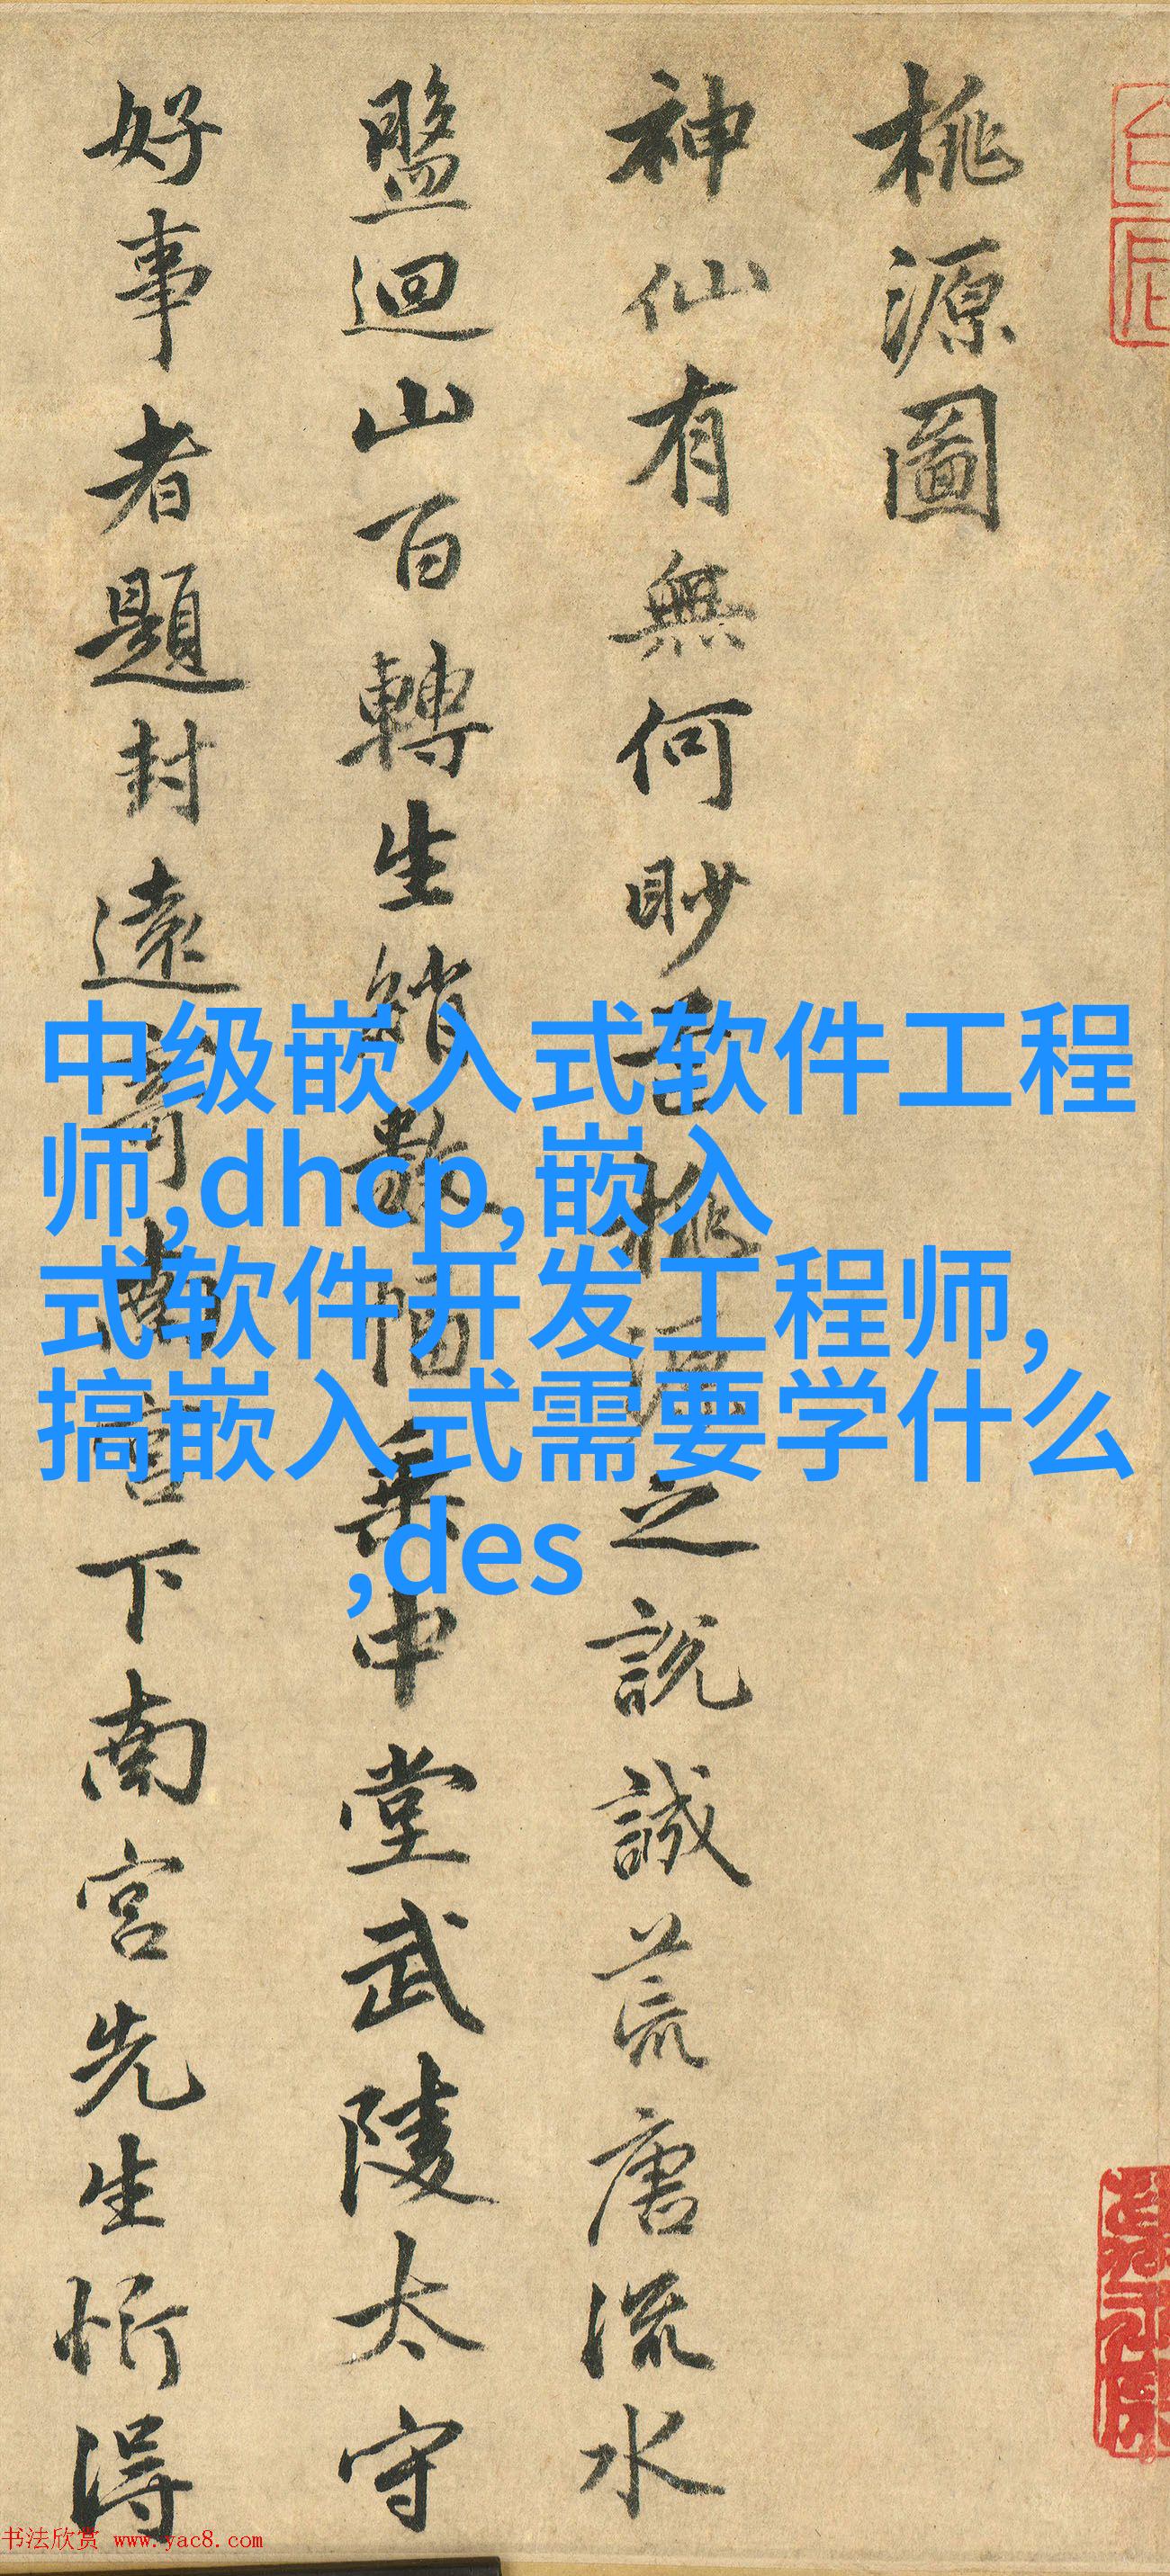 桃源圖
神仙有無何眇芒桃源之說誠荒唐流水
盤迴山百轉生綃數幅垂中堂武陵太守
好事者題封遠寄南宮下南宮先生忻得
中级嵌入式软件工程
师,dhcp,嵌入
式软件开发工程师,
搞嵌入式需要学什么
,des
书法欣赏 www.yac8.com